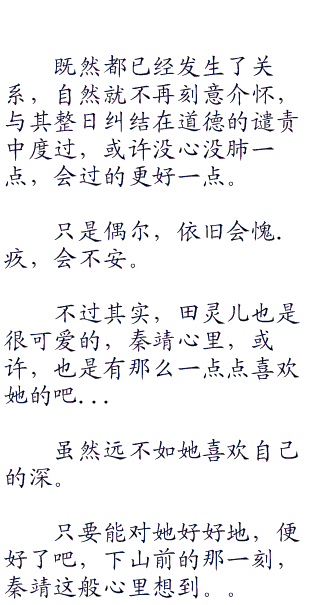 既然都已经发生了关
系，自然就不再刻意介怀，
与其整日纠结在道德的谴责
中度过，或许没心没肺一
点，会过的更好一点。
只是偶尔，依旧会愧.
疚，会不安。
不过其实，田灵儿也是
很可爱的，秦靖心里，或
许，也是有那么一点点喜欢
她的吧...
虽然远不如她喜欢自己
的深。
只要能对她好好地，便
好了吧，下山前的那一刻，
秦靖这般心里想到。。